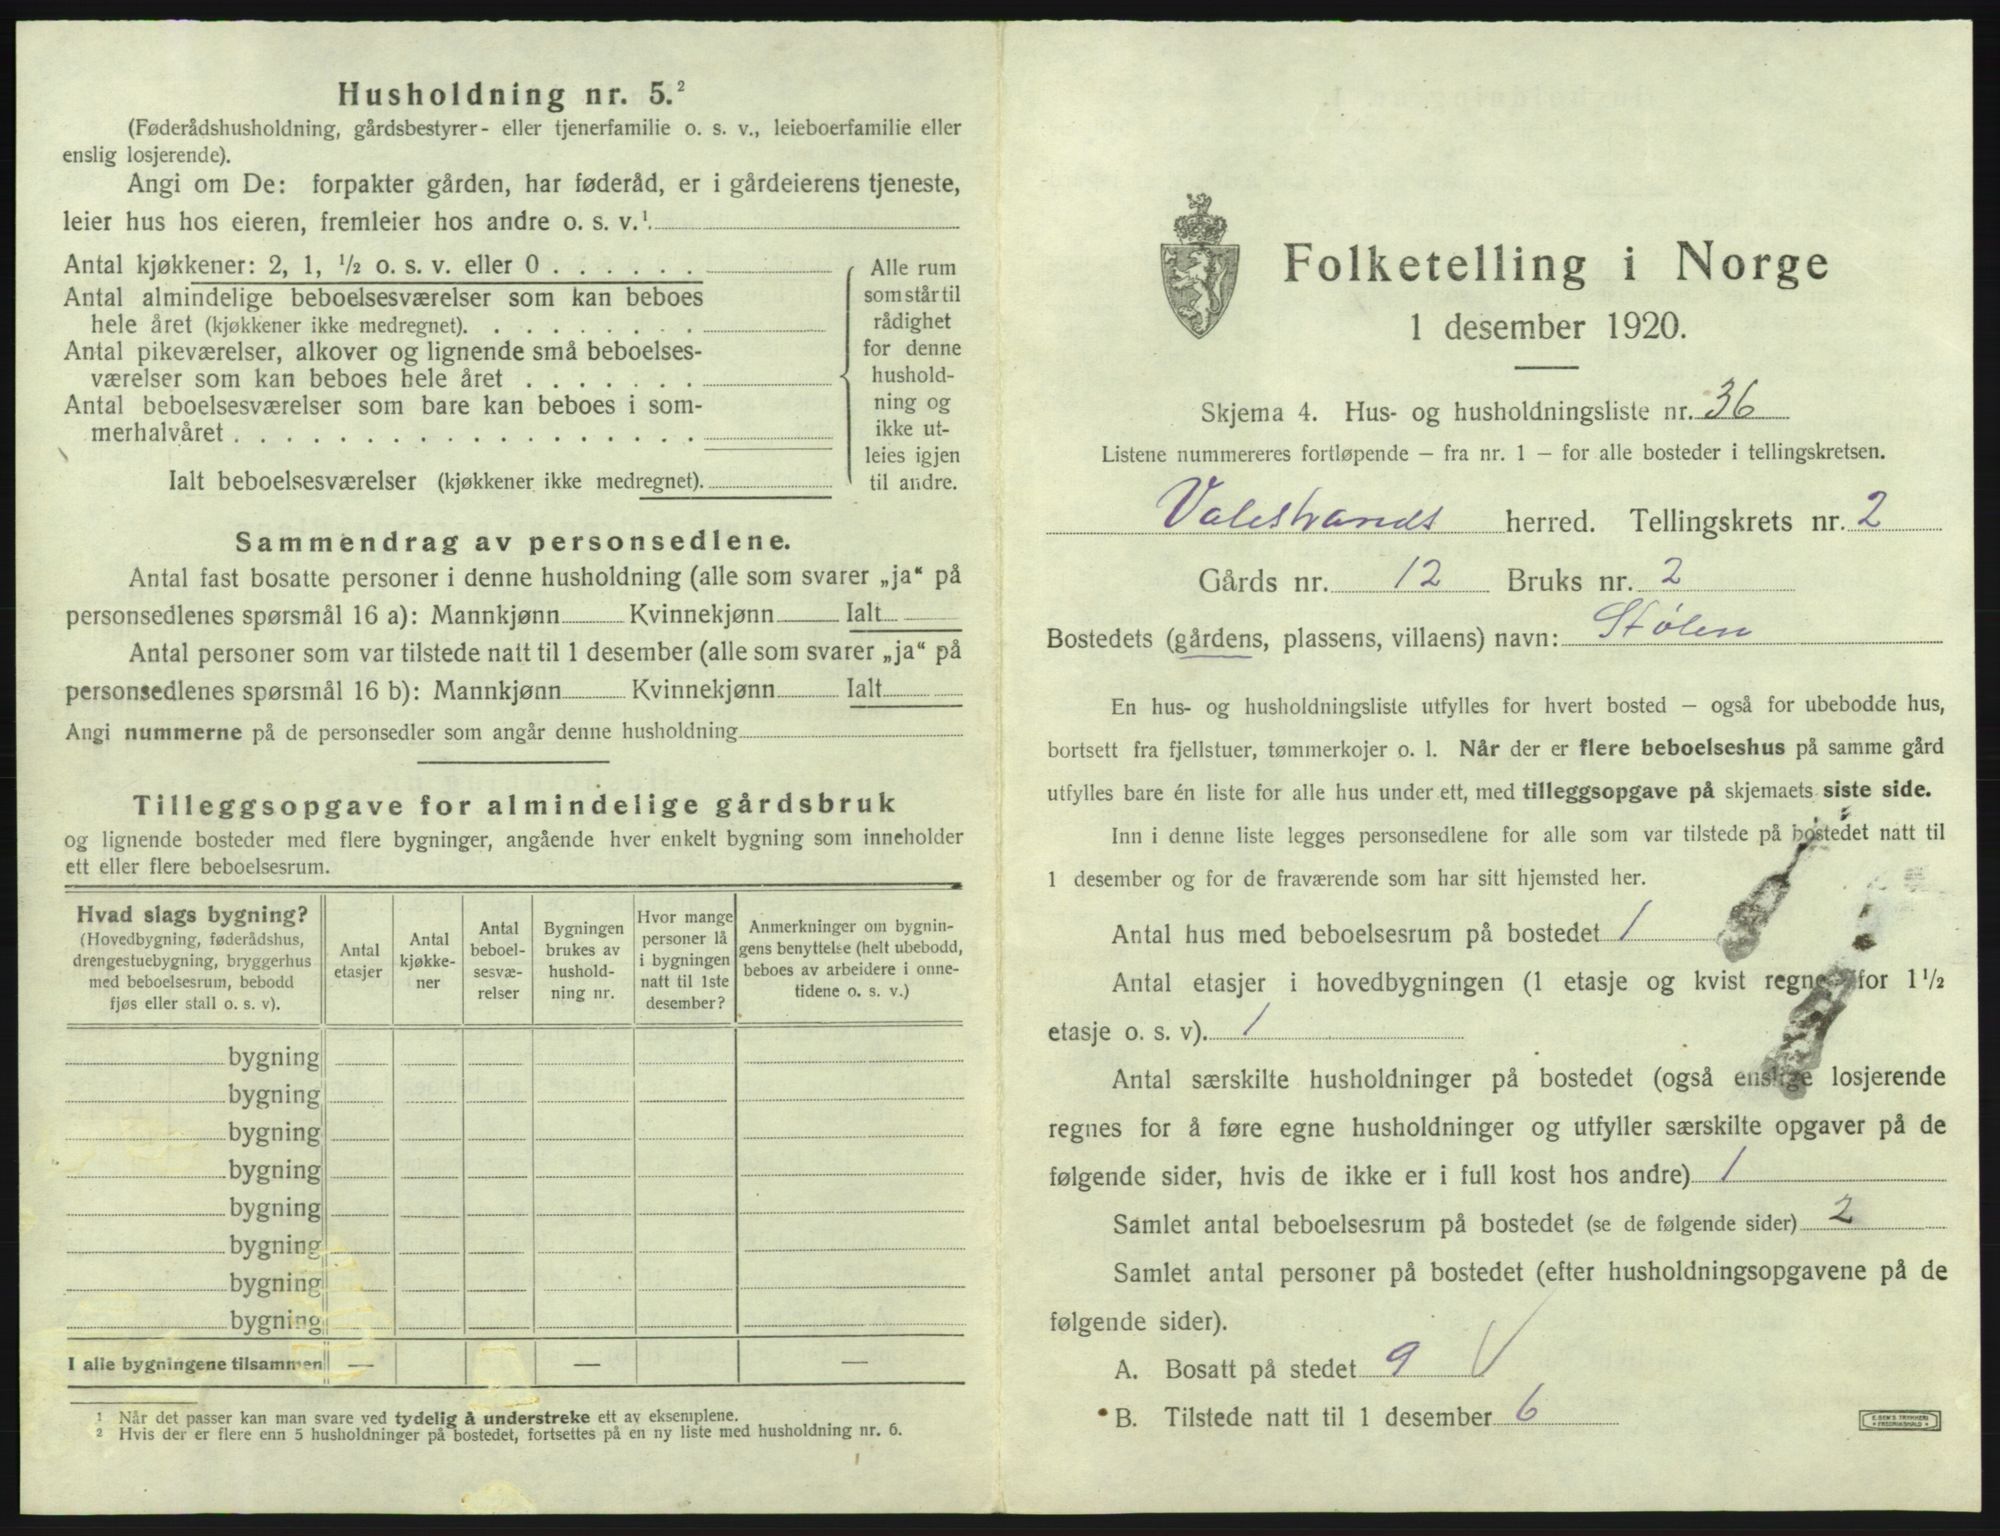 Husholdning nr. 5.²
(Føderådshusholdning, gårdsbestyrer- eller tjenerfamilie o. s. v., leieboerfamilie eller
enslig losjerende).
Angi om De: forpakter gården, har føderåd, er i gårdeierens tjeneste,
leier hus hos eieren, fremleier hos andre o. s. v.¹
Antal kjøkkener: 2, 1, ½ o. s. v. eller 0
Antal almindelige beboelsesværelser som kan beboes
hele året (kjøkkener ikke medregnet).
Antal pikeværelser, alkover og lignende små beboelses-
værelser som kan beboes hele året
Antal beboelsesværelser som bare kan beboes i som-
merhalvåret
Ialt beboelsesværelser (kjøkkener ikke medregnet).
Alle rum
som står til
rådighet
for denne
hushold-
ning og
ikke ut-
leies igjen
til andre.
Sammendrag av personsedlene.
Antal fast bosatte personer i denne husholdning (alle som svarer „ja“ på
personsedlenes spørsmål 16 a): Mannkjønn Kvinnekjønn Ialt
Antal personer som var tilstede natt til 1 desember (alle som svarer „ja“ på
personsedlenes spørsmål 16 b): Mannkjønn Kvinnekjønn Ialt
Angi nummerne på de personsedler som angår denne husholdning
Tilleggsopgave for almindelige gårdsbruk
og lignende bosteder med flere bygninger, angående hver enkelt bygning som inneholder
ett eller flere beboelsesrum.
Hvad slags bygning?
(Hovedbygning, føderådshus,
drengestuebygning, bryggerhus
med beboelsesrum, bebodd
fjøs eller stall o. s. v).
Antal
etasjer
Antal
kjøkke-
ner
Antal
beboel-
sesvæ-
relser
Bygningen
brukes av
hushold-
ning nr.
Hvor mange
personer lå
i bygningen
natt til 1ste
desember?
Anmerkninger om bygnin-
gens benyttelse (helt ubebodd,
beboes av arbeidere i onne-
tidene o. s. v.)
bygning
bygning
bygning
bygning
bygning
bygning
bygning
bygning
I alle bygningene tilsammen — — —
¹ Når det passer kan man svare ved tydelig å understreke ett av eksemplene.
² Hvis der er flere enn 5 husholdninger på bostedet, fortsettes på en ny liste med husholdning nr. 6.
Folketelling i Norge
1 desember 1920.
Skjema 4. Hus- og husholdningsliste nr. 36
Listene nummereres fortløpende – fra nr. 1 – for alle bosteder i tellingskretsen.
Valestrands herred. Tellingskrets nr. 2
Gårds nr. 12 Bruks nr. 2
Bostedets (gårdens, plassens, villaens) navn: Stølen
En hus- og husholdningsliste utfylles for hvert bosted – også for ubebodde hus,
bortsett fra fjellstuer, tømmerkojer o. l. Når der er flere beboelseshus på samme gård
utfylles bare én liste for alle hus under ett, med tilleggsopgave på skjemaets siste side.
Inn i denne liste legges personsedlene for alle som var tilstede på bostedet natt til
1 desember og for de fraværende som har sitt hjemsted her.
Antal hus med beboelsesrum på bostedet 1
Antal etasjer i hovedbygningen (1 etasje og kvist regnes for 1 ½
etasje o. s. v). 1
Antal særskilte husholdninger på bostedet (også enslige losjerende
regnes for å føre egne husholdninger og utfyller særskilte opgaver på de
følgende sider, hvis de ikke er i full kost hos andre) 1
Samlet antal beboelsesrum på bostedet (se de følgende sider) 2
Samlet antal personer på bostedet (efter husholdningsopgavene på de
følgende sider).
A. Bosatt på stedet 9 V
B. Tilstede natt til 1 desember 6
E. SEM'S TRYKKERI
FREDRIKSHALD